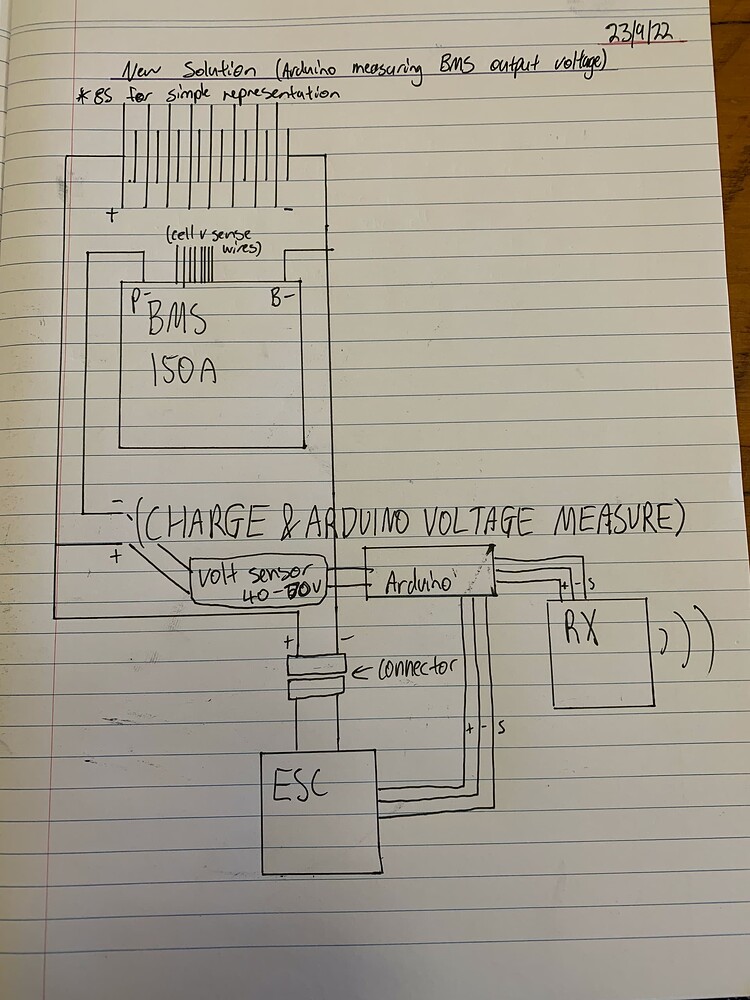 23/9/22
New Solution (Arduino measuring BMS output voltage)
* 8S for simple representation
+ -
(cell v sense
wires)
P- B-
BMS
150A
- (CHARGE & ARDUINO VOLTAGE MEASURE)
+
volt sensor
40-70v
Arduino
+ - S
RX
+ -
← connector
+ - S
ESC